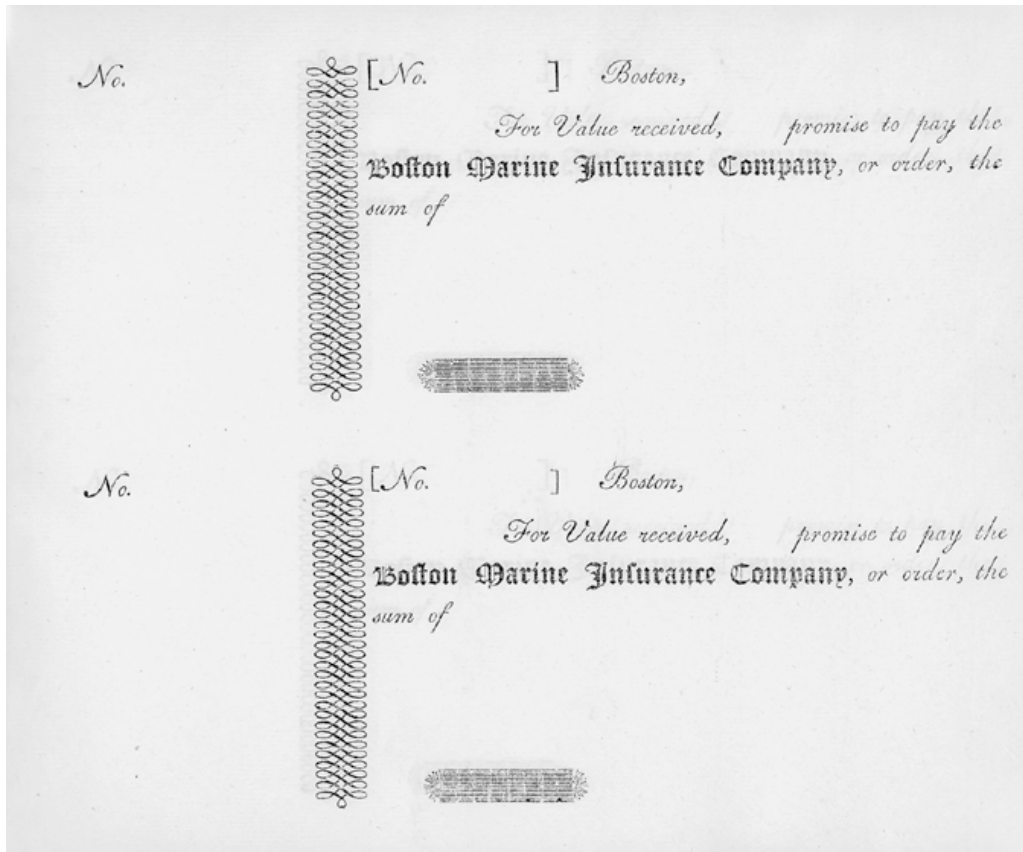 No. [No. ] Boston,
For Value received, promise to pay the
Boſton Marine Inſurance Company, or order, the
sum of
No. [No. ] Boston,
For Value received, promise to pay the
Boſton Marine Inſurance Company, or order, the
sum of